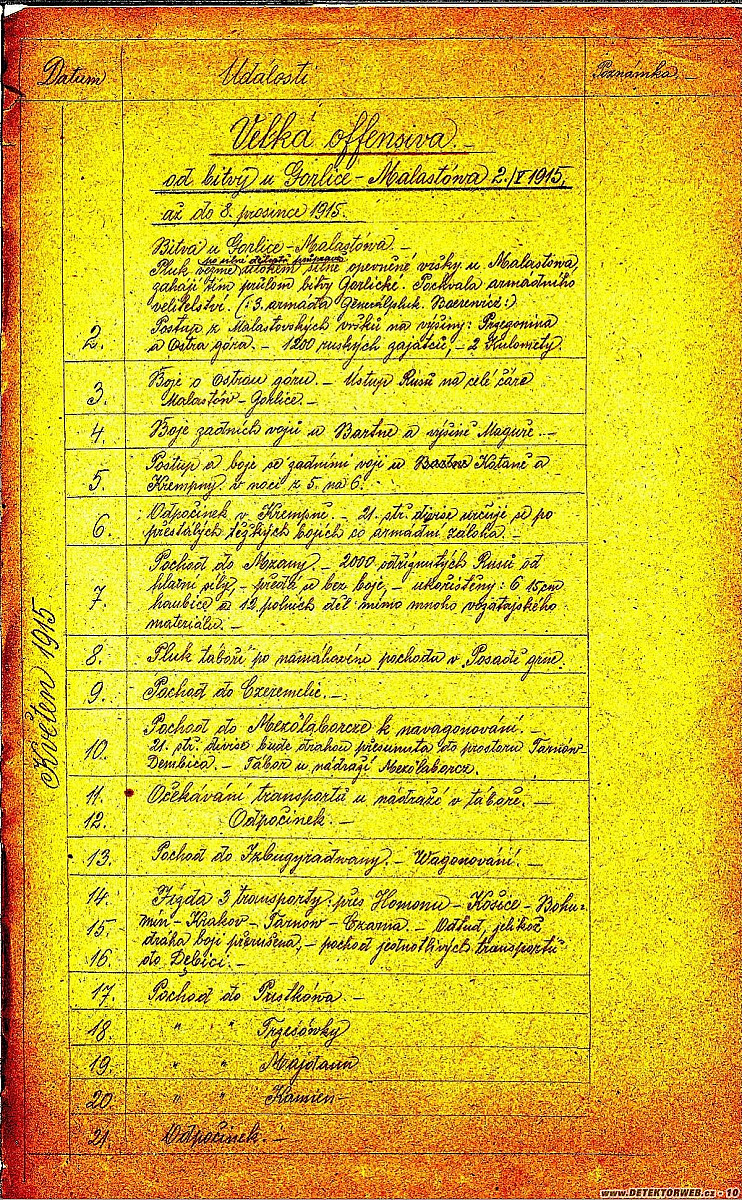 Datum Události Poznámka. –
Velká offensiva. –
od bitvy u Gorlice – Malastówa 2./V 1915.
až do 8. prosince 1915.
Květen 1915.
Bitva u Gorlice – Malastówa. –
po silné dělostř. přípravě
Pluk vezme útokem silně opevněné vršky u Malastowa,
zahájí tím průlom bitvy Gorlické. Pochvala armádního
velitelství. (: 3. armáda Generálpluk. Boerewicz :)
Postup z Malastovských vršků na výšiny: Przegonina
2. a Ostra góra. – 1200 ruských zajatců, – 2 kulomety.
Boje o Ostrou góru. – Ústup Rusů na celé čáře
3. Malastów – Gorlice. –
4. Boje zadních vojů u Bartne a výšině Maguře. –
Postup a boje se zadními voji u Kotaně a
5. Krempny v noci z 5. na 6.
Odpočinek v Krempně. – 21. stř. divise určuje se po
6. přestálých těžkých bojích co armádní záloha. –
Pochod do Mszany. – 2000 odříznutých Rusů od
hlavní síly, – předá se bez boje, – ukořistěny: 6 15cm
7. haubice a 12 polních děl mimo mnoho vozatajského
materiálu. –
8. Pluk táboří po namáhavém pochodu v Posadě grne.
9. Pochod do Czeremche. –
Pochod do Mezölaborcze k navagonování. –
10. 21. stř. divise bude drahou přesunuta do prostoru Tarnów
Dembica. – Tábor u nádraží Mezölaborcz.
11. Očekávání transportu u nádraží v táboře. –
12. Odpočinek. –
13. Pochod do Izbugyradwany. – Wagonování. –
14. Jízda 3 transporty přes Homonu – Košice – Bohu-
15. mín – Krakov – Tarnów – Czarna. – Odtud, jelikož
dráha boji přerušena, – pochod jednotlivých transportů
16. do Dębici. –
17. Pochod do Pustkówa. –
18. " " Trzesówky
19. " " Majdanu
20. " " Kamien –
21. Odpočinek. –
www.DETEKTORWEB.cz